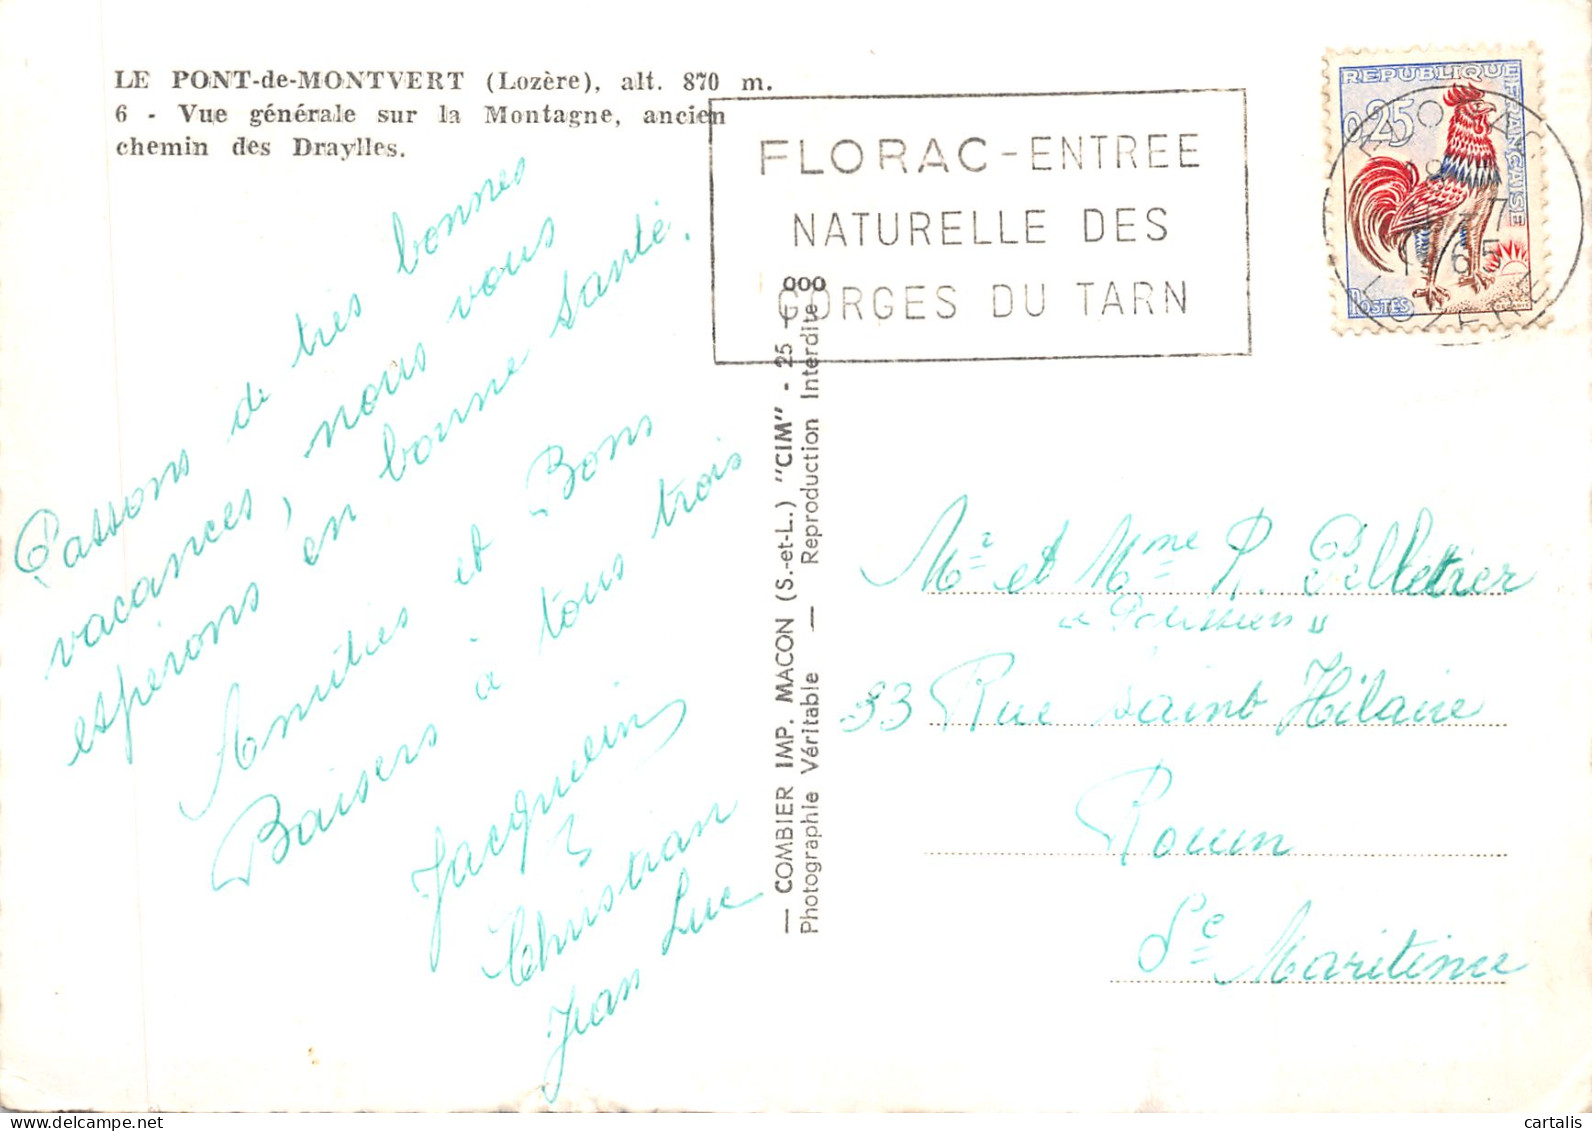 LE PONT-de-MONTVERT (Lozère), alt. 870 m.
6 - Vue générale sur la Montagne, ancien
chemin des Draylles.
Passons de très bonnes
vacances, nous vous
espérons en bonne santé.
Amitiés et Bons
Baisers à tous trois
Jacquelin
Christian
Jean Luc
FLORAC-ENTREE
NATURELLE DES
GORGES DU TARN
REPUBLIQUE FRANÇAISE
0,25
POSTES
FLORAC
1965
LOZERE
— COMBIER IMP. MACON (S.-et-L.) "CIM" - 25 - 000
Photographie Véritable — Reproduction Interdite
Mr et Mme R. Pelletier
33 Rue saint Hilaire
Rouen
Se Maritime
delcampe.net
cartalis